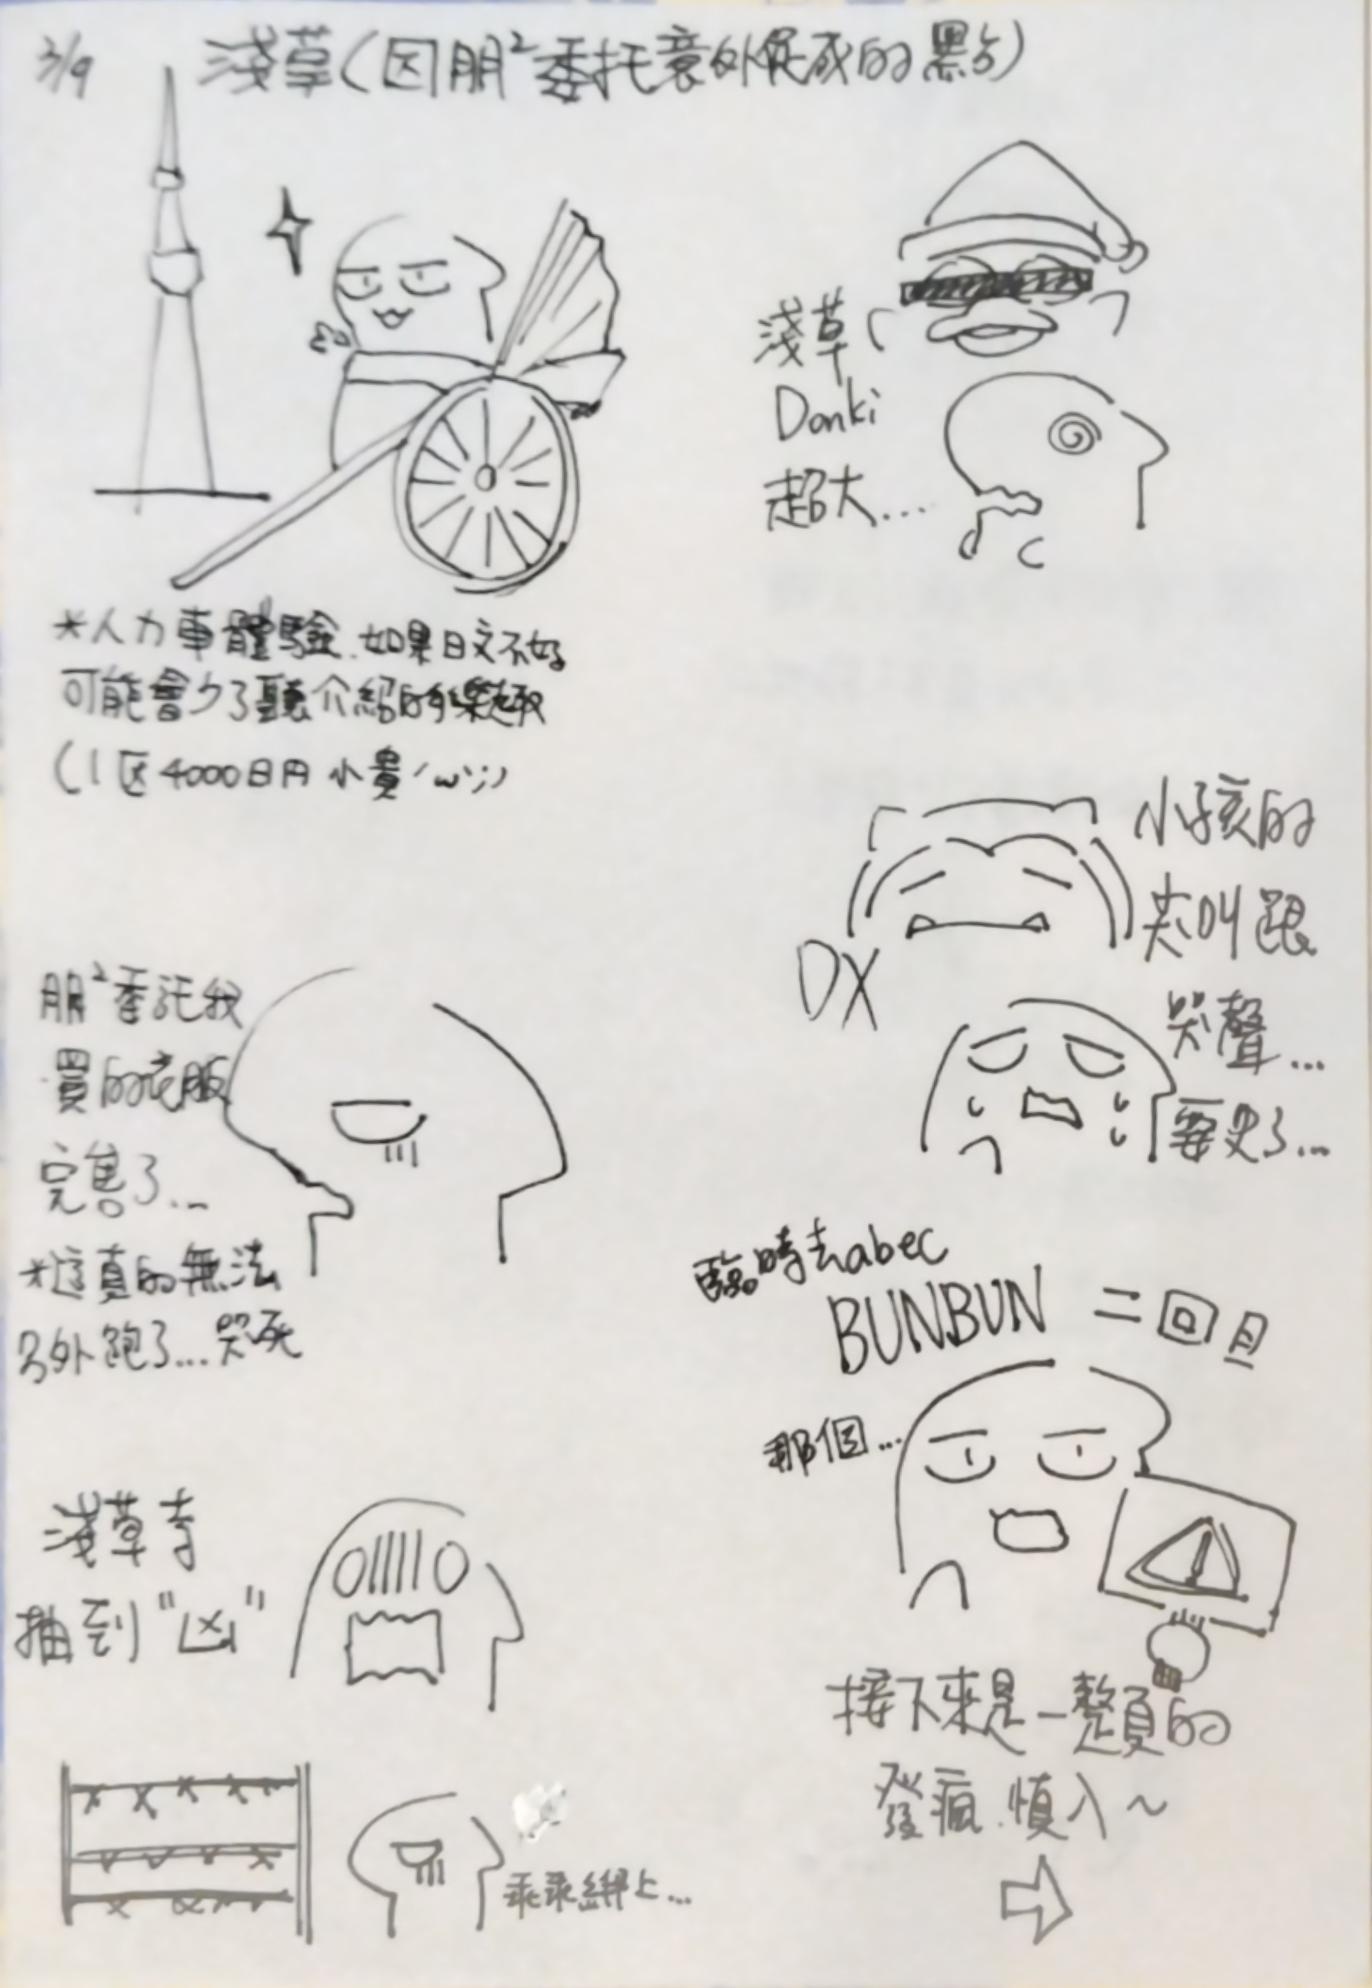 3/9 淺草(因朋²委托意外促成的點)
*人力車體驗.如果日文不好
可能會少了聽介紹的樂趣
(1区4000日円小貴/ω';;)
朋²委託我
買的衣服
完售了...
*這真的無法
另外跑了...哭死
淺草寺
抽到"凶"
乖乖綁上...
淺草
Donki
超大...
小孩的
尖叫跟
哭聲...
要史了...
DX
臨時去abec
BUNBUN 二回目
那個...
!
接下來是一整頁的
發瘋.慎入~